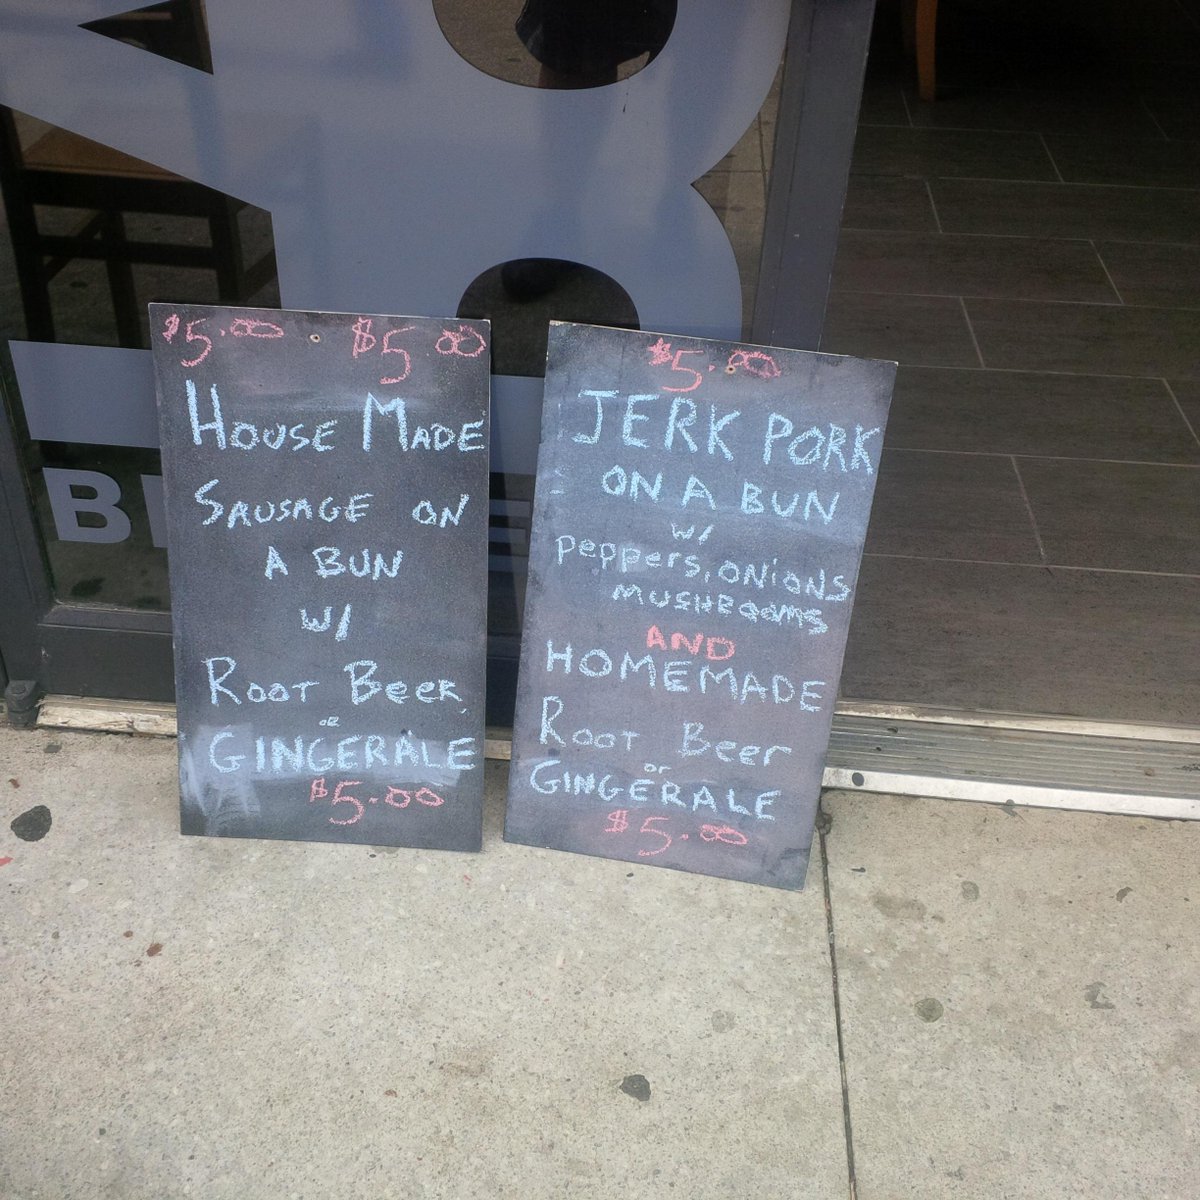 $5.00 . $5.00
HOUSE MADE
SAUSAGE ON
A BUN
W/
ROOT BEER,
OR
GINGERALE
$5.00
$5.00
JERK PORK
ON A BUN
W/
Peppers, ONIONS
MUSHROOMS
AND
HOMEMADE
ROOT Beer
or
GINGERALE
$5.00